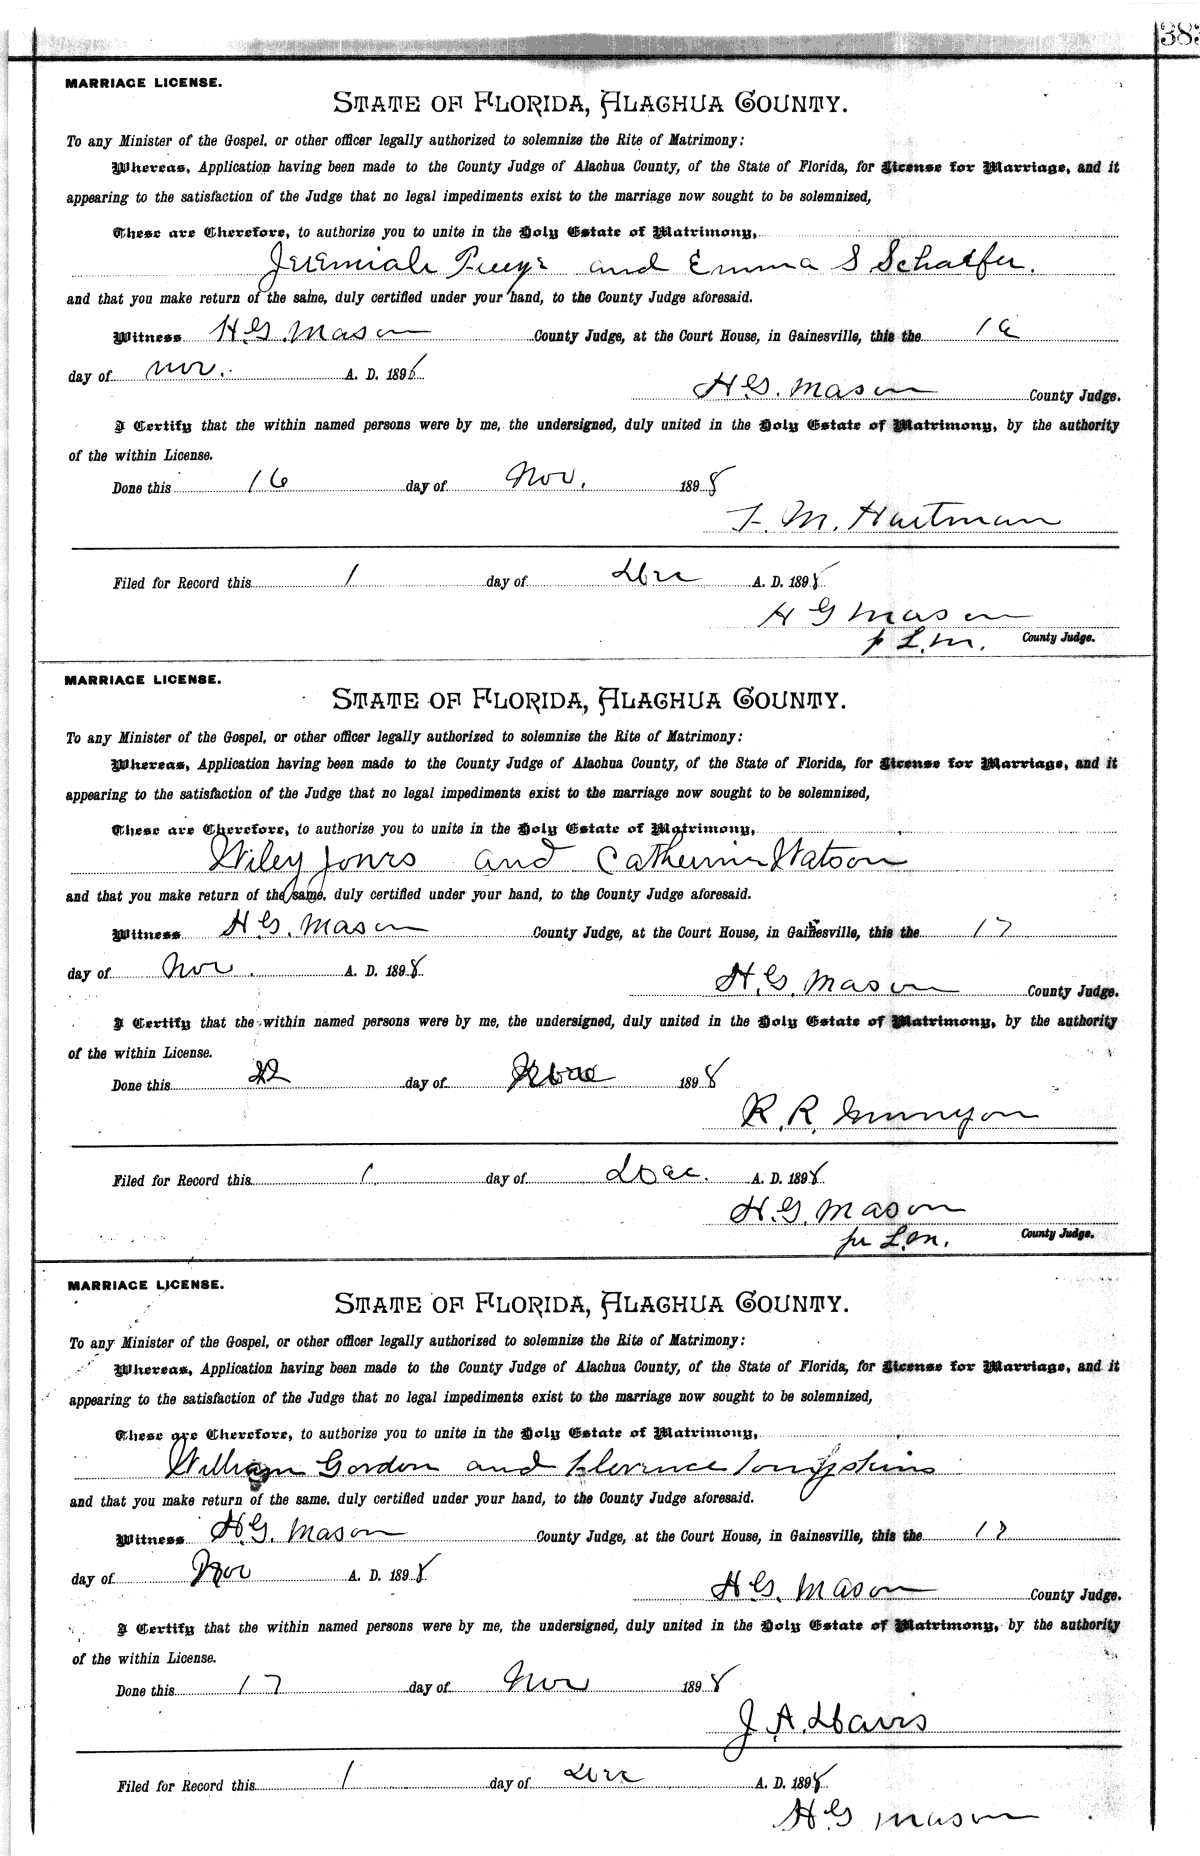 383
MARRIAGE LICENSE.
STATE OF FLORIDA, ALACHUA COUNTY.
To any Minister of the Gospel, or other officer legally authorized to solemnize the Rite of Matrimony:
Whereas, Application having been made to the County Judge of Alachua County, of the State of Florida, for License for Marriage, and it
appearing to the satisfaction of the Judge that no legal impediments exist to the marriage now sought to be solemnized,
These are Therefore, to authorize you to unite in the Holy Estate of Matrimony,
Jeremiah and Emma S Schaefer.
and that you make return of the same, duly certified under your hand, to the County Judge aforesaid.
Witness H.G. Mason County Judge, at the Court House, in Gainesville, this the 16
day of Nov. A. D. 1898
H.G. Mason County Judge.
I Certify that the within named persons were by me, the undersigned, duly united in the Holy Estate of Matrimony, by the authority
of the within License.
Done this 16 day of Nov. 1898
T. M. Hartman
Filed for Record this 1 day of Dec A. D. 1898
H G Mason
p L.M. County Judge.
MARRIAGE LICENSE.
STATE OF FLORIDA, ALACHUA COUNTY.
To any Minister of the Gospel, or other officer legally authorized to solemnize the Rite of Matrimony:
Whereas, Application having been made to the County Judge of Alachua County, of the State of Florida, for License for Marriage, and it
appearing to the satisfaction of the Judge that no legal impediments exist to the marriage now sought to be solemnized,
These are Therefore, to authorize you to unite in the Holy Estate of Matrimony,
Wiley Jones and Catherine Watson
and that you make return of the same, duly certified under your hand, to the County Judge aforesaid.
Witness H.G. Mason County Judge, at the Court House, in Gainesville, this the 17
day of Nov. A. D. 1898
H.G. Mason County Judge.
I Certify that the within named persons were by me, the undersigned, duly united in the Holy Estate of Matrimony, by the authority
of the within License.
Done this 22 day of 1898
R. R.
Filed for Record this 1 day of Dec. A. D. 1898
H.G. Mason
pr L.M. County Judge.
MARRIAGE LICENSE.
STATE OF FLORIDA, ALACHUA COUNTY.
To any Minister of the Gospel, or other officer legally authorized to solemnize the Rite of Matrimony:
Whereas, Application having been made to the County Judge of Alachua County, of the State of Florida, for License for Marriage, and it
appearing to the satisfaction of the Judge that no legal impediments exist to the marriage now sought to be solemnized,
These are Therefore, to authorize you to unite in the Holy Estate of Matrimony,
William Gordon and Florence Tompkins
and that you make return of the same, duly certified under your hand, to the County Judge aforesaid.
Witness H.G. Mason County Judge, at the Court House, in Gainesville, this the 17
day of Nov A. D. 1898
H.G. Mason County Judge.
I Certify that the within named persons were by me, the undersigned, duly united in the Holy Estate of Matrimony, by the authority
of the within License.
Done this 17 day of Nov 1898
J. A. Davis
Filed for Record this 1 day of Dec A. D. 1898
H.G Mason